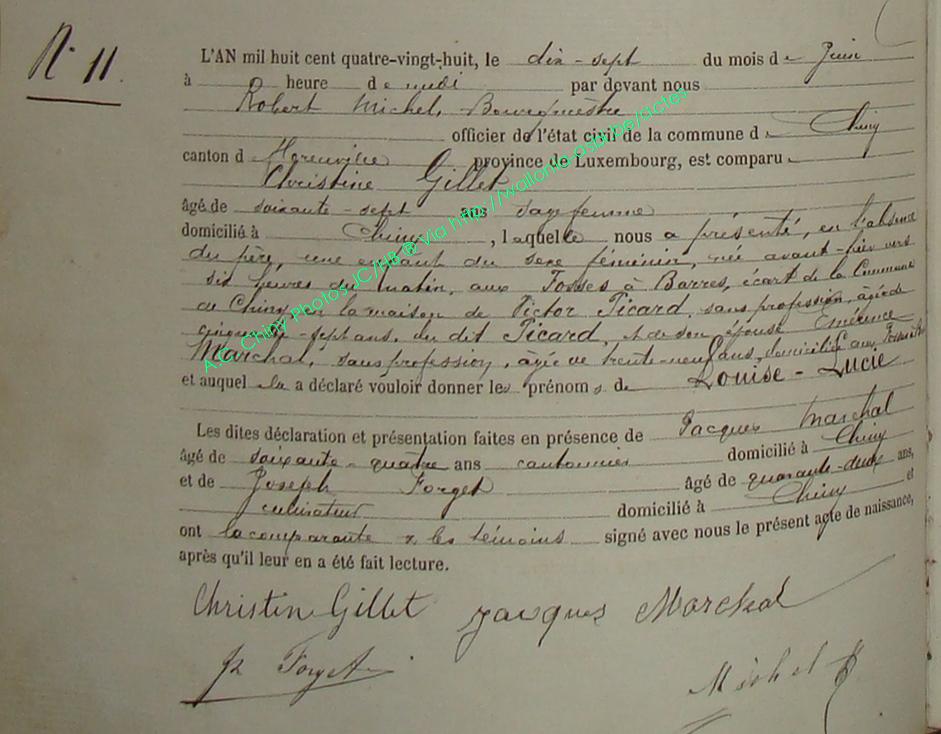 N° 11.
L'AN mil huit cent quatre-vingt-huit, le dix-sept du mois de Juin
à heure de midi par devant nous
Robert Michel, Bourgmestre
officier de l'état civil de la commune de Chiny
canton d Florenville province de Luxembourg, est comparu
Christine Gillet
âgé de soixante-sept ans sagefemme
domicilié à Chiny, laquelle nous a présenté, en l'absence
du père, une enfant du sexe féminin, née avant-hier vers
six heures du matin, aux Fosses à Barres, écart de la Commune
de Chiny en la maison de Victor Picard, sans profession, âgé de
cinquante-sept ans, du dit Picard, et de son épouse Emérence
Marchal, sans profession, âgée de trente-neuf ans, domiciliés aux Fosses
et auquel elle a déclaré vouloir donner les prénoms de Louise-Lucie
Les dites déclaration et présentation faites en présence de Jacques Marchal
âgé de soixante-quatre ans cantonnier domicilié à Chiny
et de Joseph Forget âgé de quarante-deux ans,
cultivateur domicilié à Chiny et
ont la comparante & les témoins signé avec nous le présent acte de naissance,
après qu'il leur en a été fait lecture.
Christin Gillet Jacques Marchal
Forget
Michel R
A.C. Chiny Photos JC/HB ® Via http://wallonia-asbl.be/actes